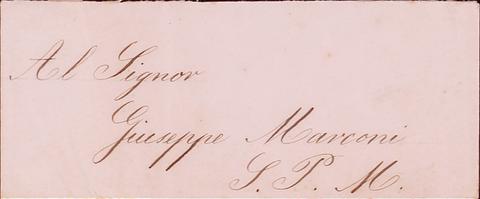 Al Signor
Giuseppe Marconi
S. P. M.